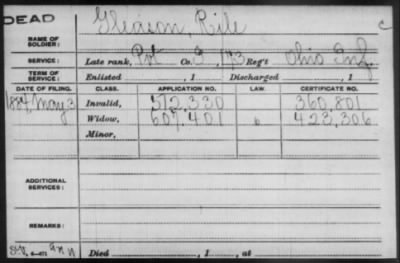 DEAD
Gleason, Rile
NAME OF SOLDIER:
SERVICE: Late rank, Pvt Co. G, 173 Reg't Ohio Inf.
TERM OF SERVICE: Enlisted , 1 Discharged , 1
DATE OF FILING. CLASS. APPLICATION NO. LAW. CERTIFICATE NO.
1884, May 3 Invalid, 512,330 360,801
Widow, 607,401 6 423,306
Minor,
ADDITIONAL SERVICES:
REMARKS:
Died , 1 , at